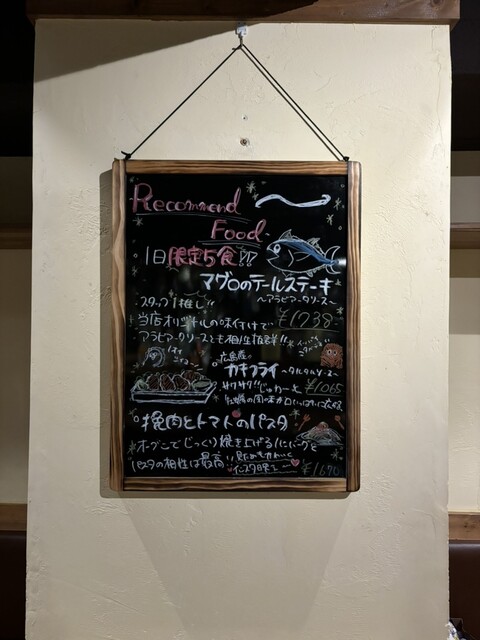 Recommend
Food
1日限定5食!!
マグロのテールステーキ
~アラビアータソース~
スタッフ1推し!!
¥1738-
当店オリジナルの味付けで
アラビアータソースとも相性抜群!!
広島産
カキフライ ~タルタルソース~
サクサク!! じゅわーと ¥1065
牡蠣の風味がお口いっぱいに広がる
挽肉とトマトのパスタ
オーブンでじっくり焼き上げるハンバーグと
パスタの相性は最高!!
¥1670